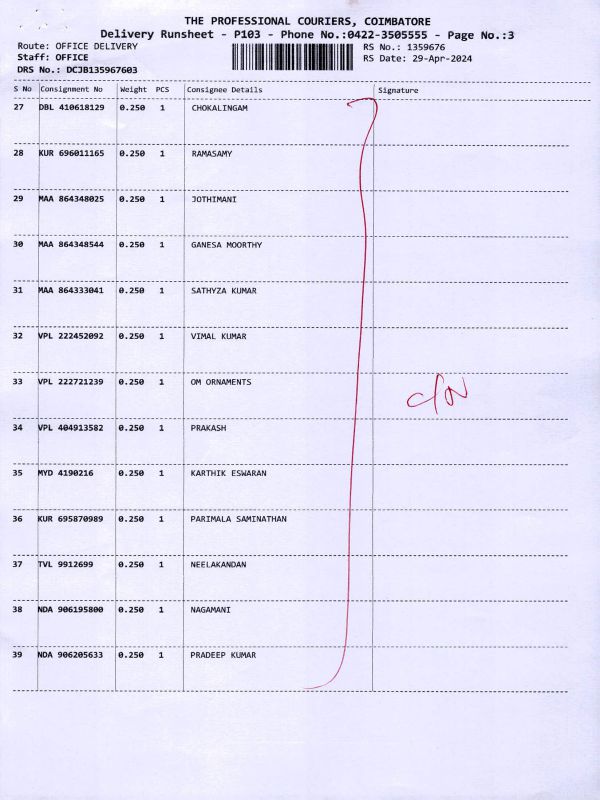 THE PROFESSIONAL COURIERS, COIMBATORE
Delivery Runsheet - P103 - Phone No.:0422-3505555 - Page No.:3
Route: OFFICE DELIVERY RS No.: 1359676
Staff: OFFICE RS Date: 29-Apr-2024
DRS No.: DCJB135967603
S No Consignment No Weight PCS Consignee Details Signature
27 DBL 410618129 0.250 1 CHOKALINGAM
28 KUR 696011165 0.250 1 RAMASAMY
29 MAA 864348025 0.250 1 JOTHIMANI
30 MAA 864348544 0.250 1 GANESA MOORTHY
31 MAA 864333041 0.250 1 SATHYZA KUMAR
32 VPL 222452092 0.250 1 VIMAL KUMAR
33 VPL 222721239 0.250 1 OM ORNAMENTS
34 VPL 404913582 0.250 1 PRAKASH
35 MYD 4190216 0.250 1 KARTHIK ESWARAN
36 KUR 695870989 0.250 1 PARIMALA SAMINATHAN
37 TVL 9912699 0.250 1 NEELAKANDAN
38 NDA 906195800 0.250 1 NAGAMANI
39 NDA 906205633 0.250 1 PRADEEP KUMAR